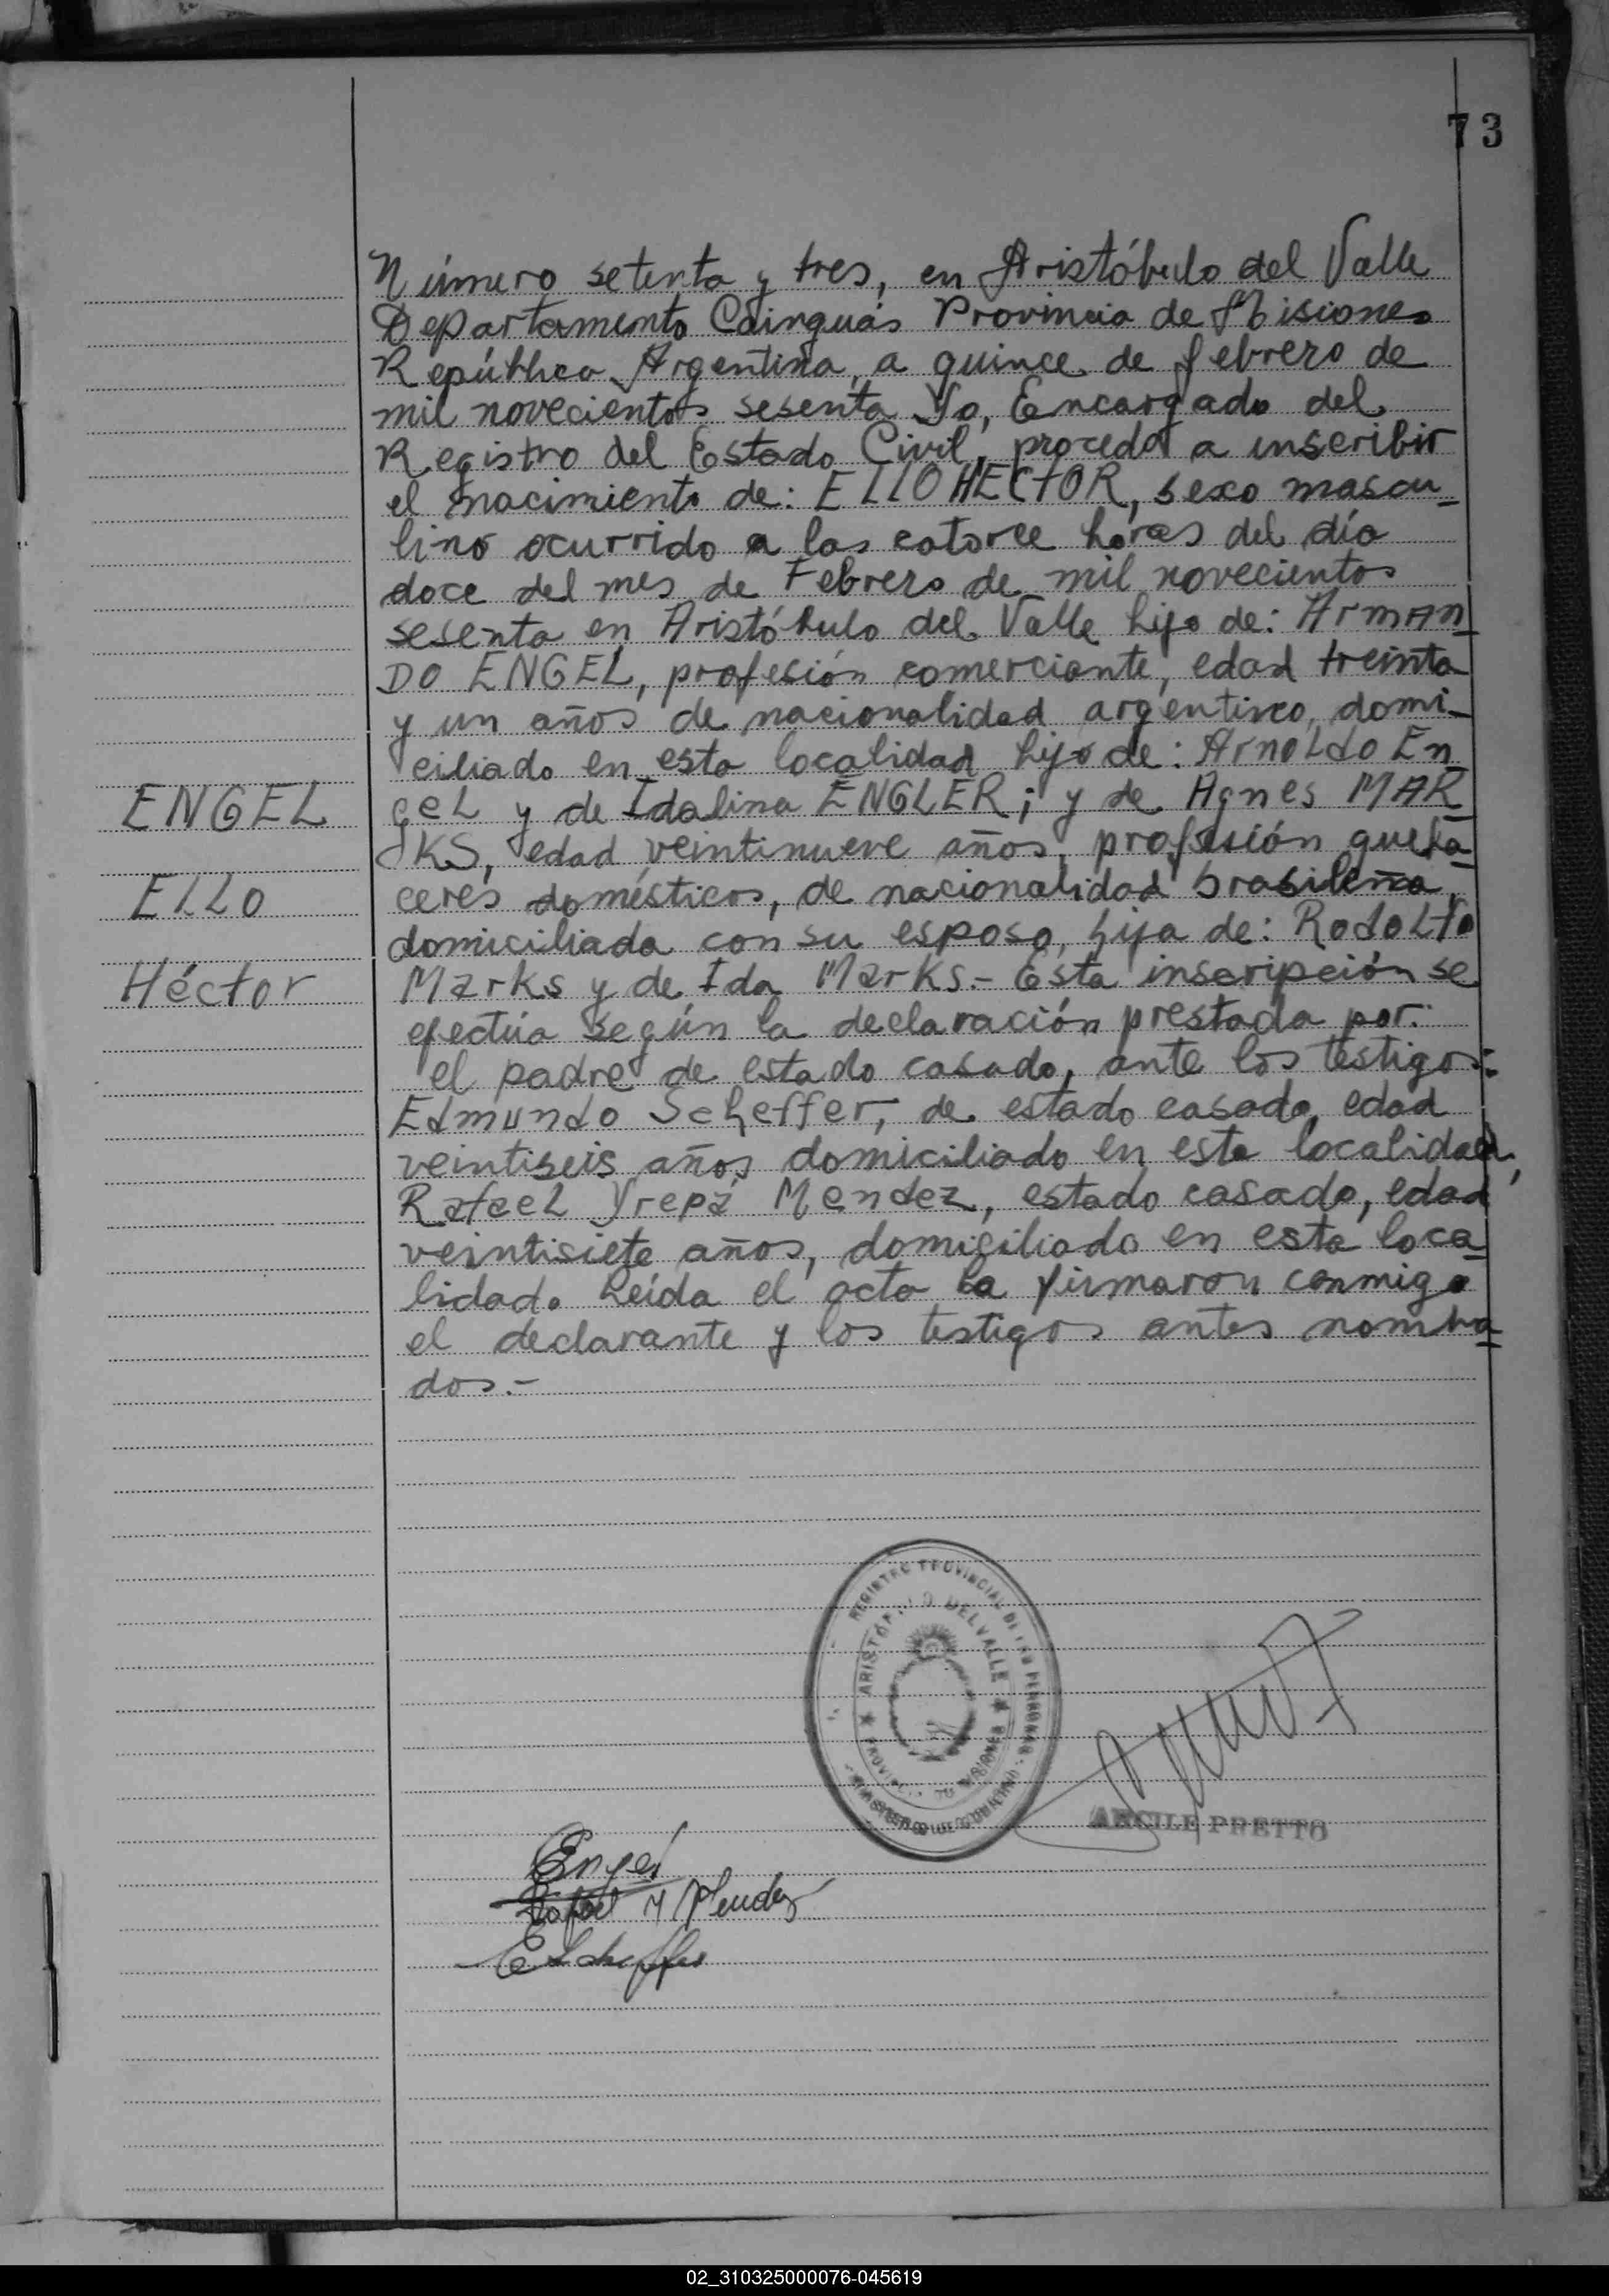 73
Número setenta y tres, en Aristóbulo del Valle
Departamento Cainguás Provincia de Misiones
República Argentina, a quince de febrero de
mil novecientos sesenta Yo, Encargado del
Registro del Estado Civil, procedo a inscribir
el nacimiento de: ELLO HECTOR, sexo mascu-
lino ocurrido a las catorce horas del día
doce del mes de Febrero de mil novecientos
sesenta en Aristóbulo del Valle hijo de: ArmAn
DO ENGEL, profesión comerciante, edad treinta
y un años de nacionalidad argentino, domi-
ciliado en esta localidad hijo de: Arnoldo En
gel y de Idalina ENGLER; y de Agnes MAR
KS, edad veintinueve años, profesión queha-
ceres domésticos, de nacionalidad brasileña,
domiciliada con su esposo, hija de: Rodolfo
Marks y de Ida Marks.- Esta inscripción se
efectúa según la declaración prestada por:
el padre de estado casado, ante los testigos:
Edmundo Scheffer, de estado casado, edad
veintiseis años domiciliado en esta localidad,
Rafael Yrepá Mendez, estado casado, edad
veintisiete años, domiciliado en esta loca-
lidad. Leída el acta la firmaron conmigo
el declarante y los testigos antes nombra-
dos.-
ENGEL
ELLO
Héctor
REGISTRO PROVINCIAL DE LAS PERSONAS
ARISTÓBULO DEL VALLE
PROVINCIA DE MISIONES
ANCILE PRETTO
Engel
Rafael Y Mendez
E Scheffer
02_310325000076-045619